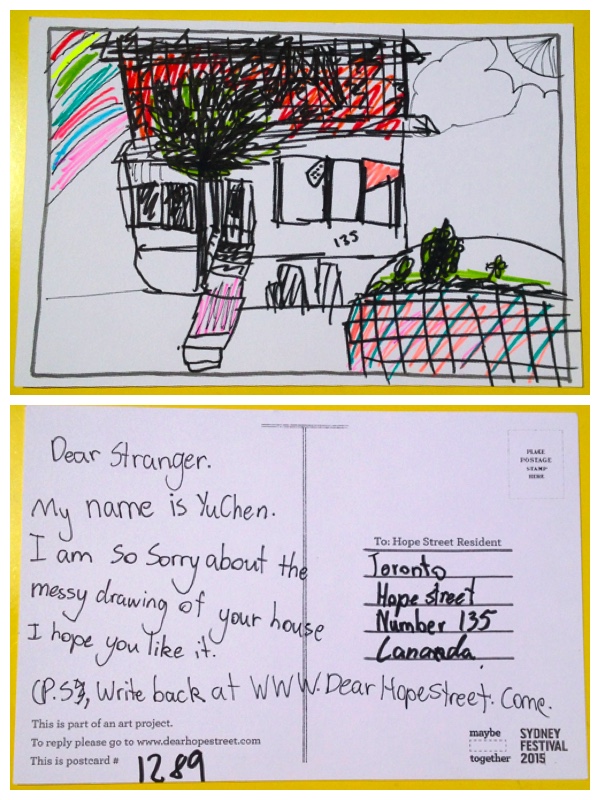 135
Dear Stranger.
My name is YuChen.
I am so Sorry about the
messy drawing of your house
I hope you like it.
(P.S), Write back at WWW.DearHopeStreet. Come.
This is part of an art project.
To reply please go to www.dearhopestreet.com
This is postcard # 1289
PLACE
POSTAGE
STAMP
HERE
To: Hope Street Resident
Toronto
Hope street
Number 135
Cananda
maybe
together
SYDNEY
FESTIVAL
2015